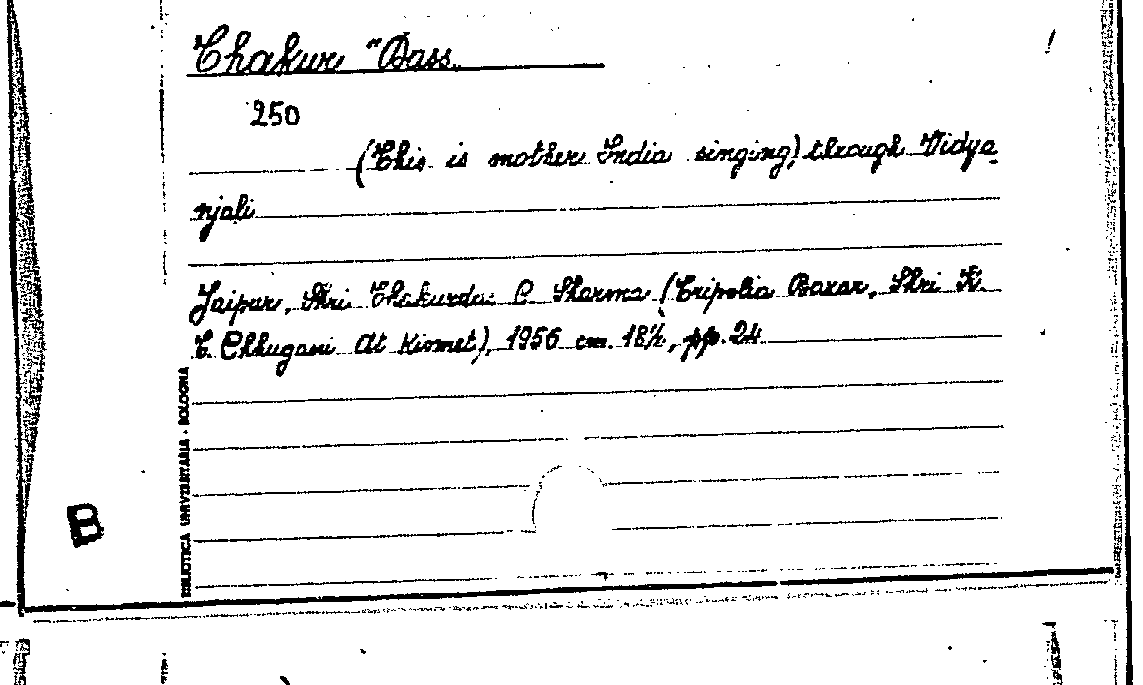 Thakur Dass.
250
(This is mother India singing) through Vidya
njali
Jaipur, Shri Thakurdas C Sharma (Tripolia Bazar, Shri K.
T. Chhugani At Kismet), 1956 cm. 18½, pp. 24
BIBLIOTECA UNIVERSITARIA - BOLOGNA
B